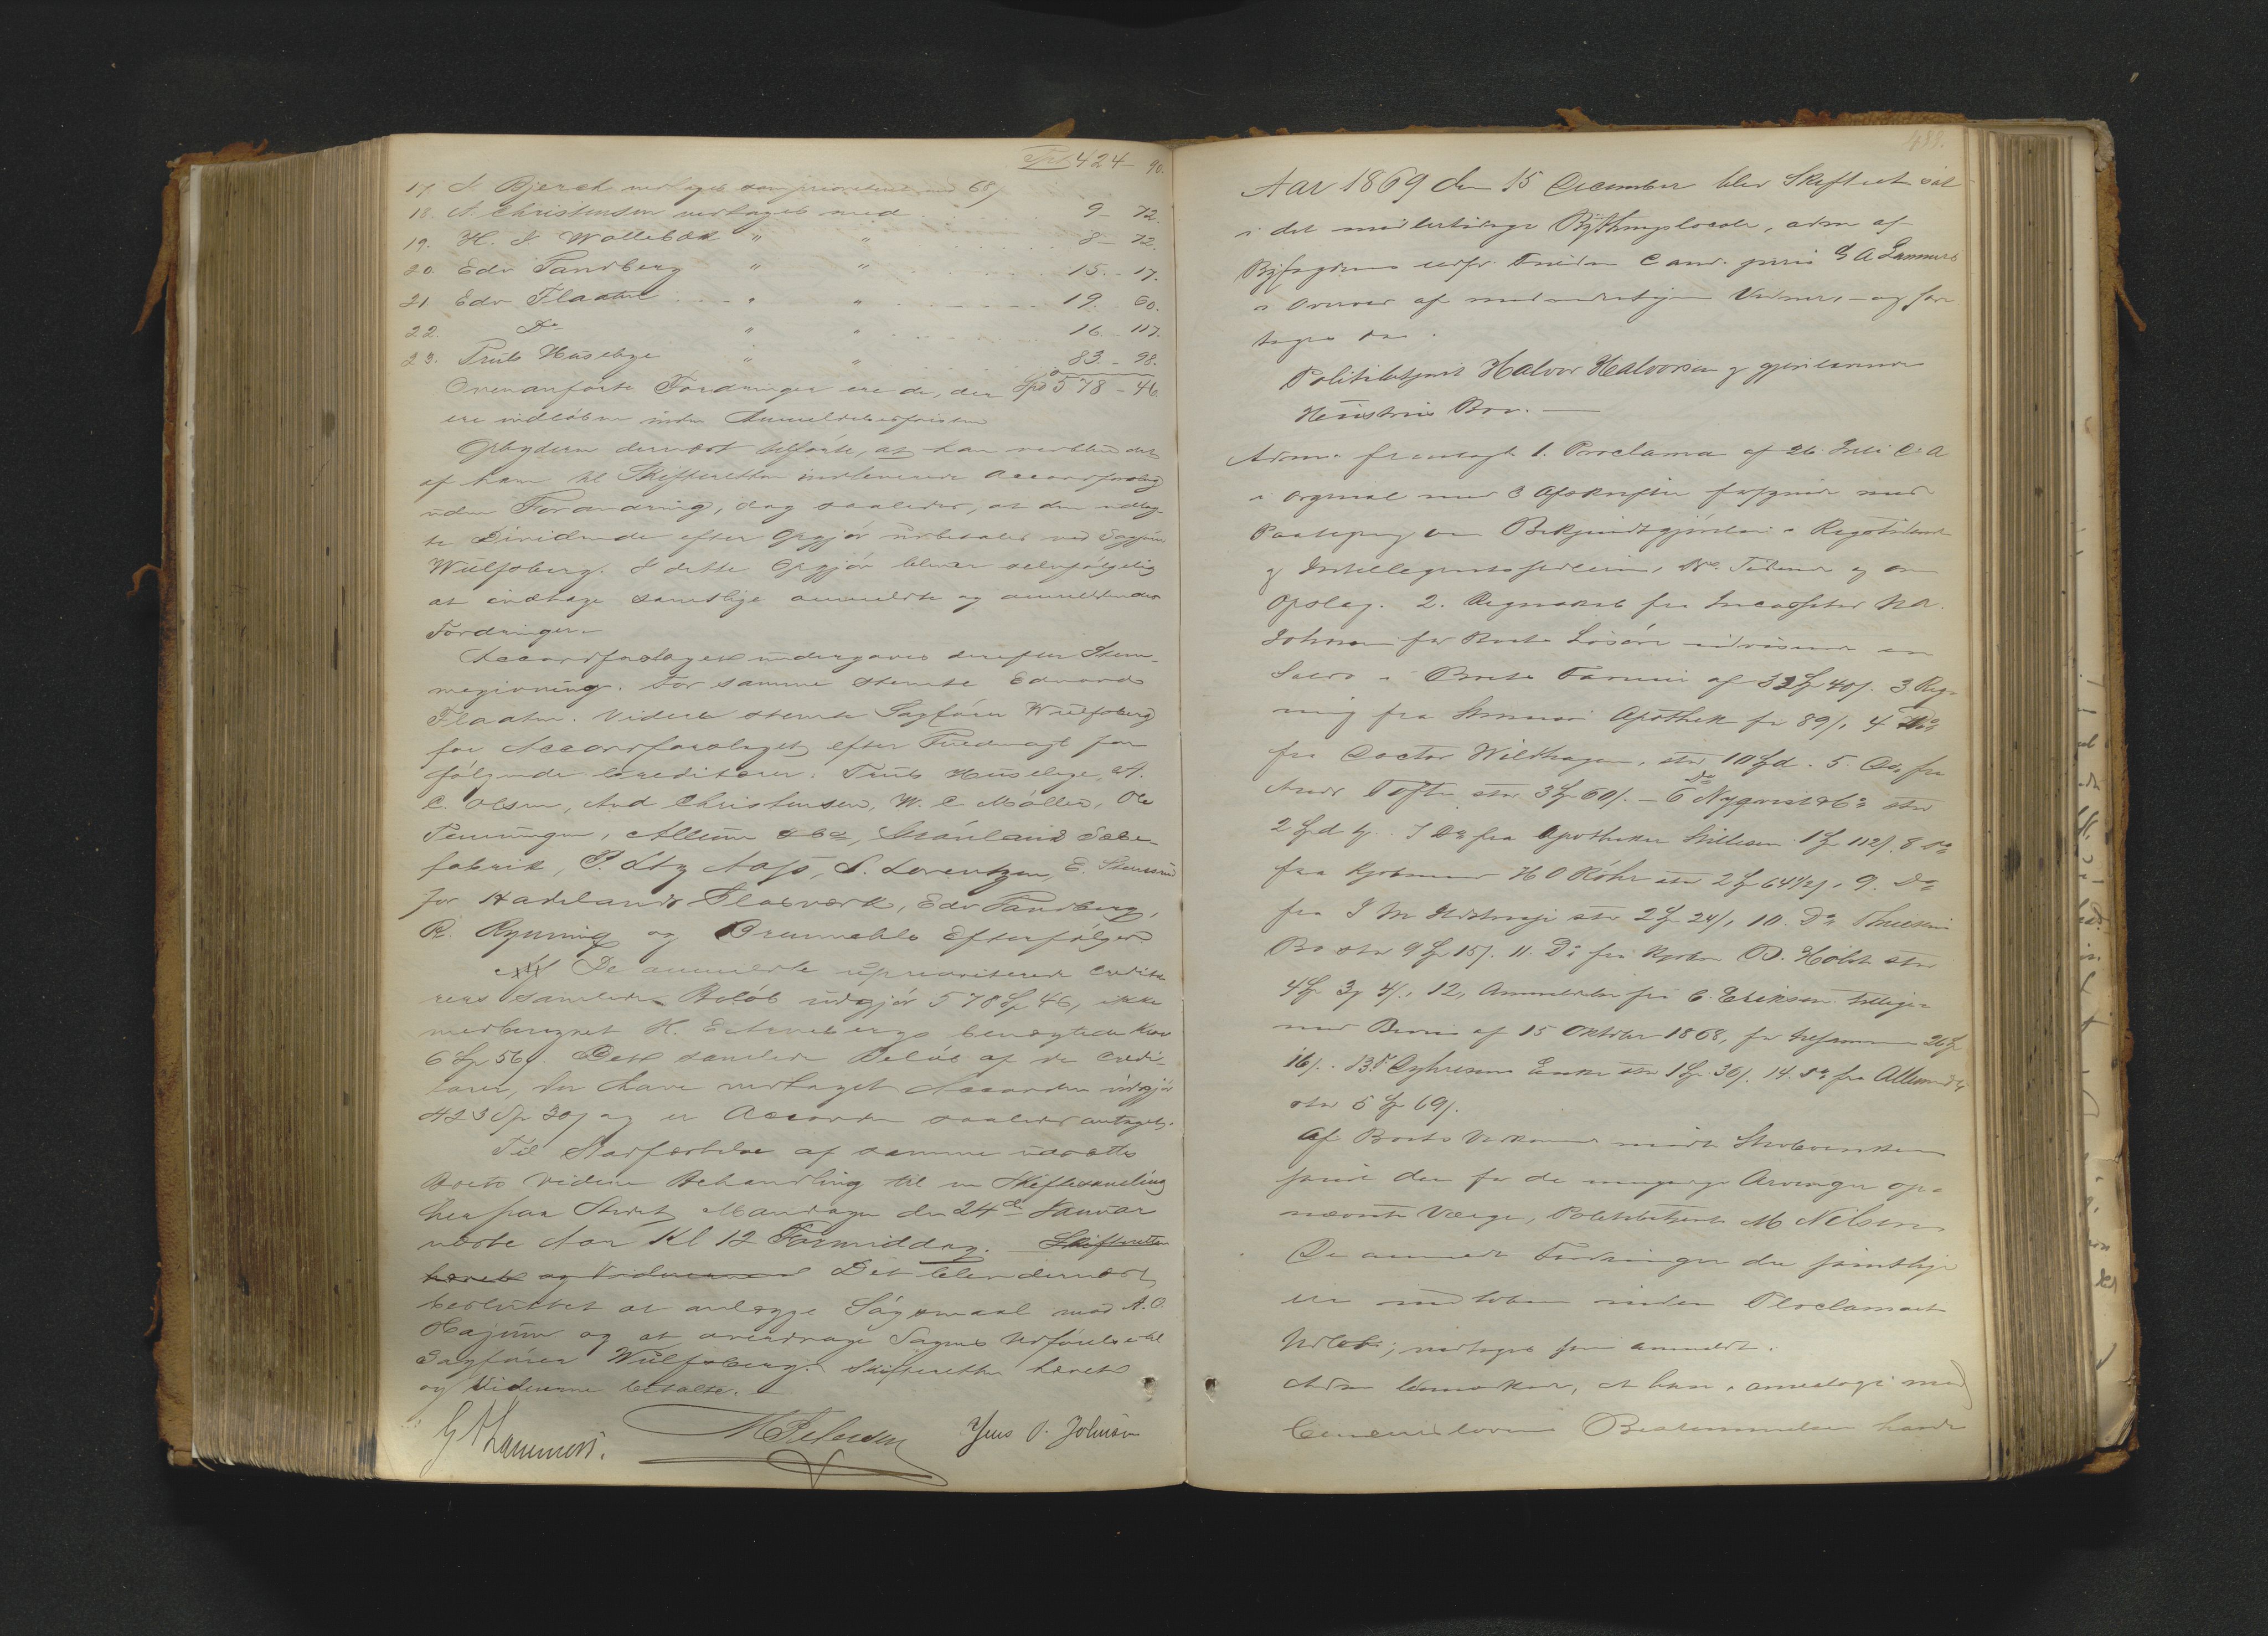 Trp 424 - 90.
17. J. Bjerck vedtages som prioriteret med 68/
18. A Christensen vedtages med 9 - 72.
19. H. J. Wollebæk " " 8 - 72.
20. Edv Tandberg " " 15 - 17.
21 Edv Flaaten " " 19. 60.
22. Do " " 16. 117.
23. Truls Huseby " " 83. - 98.
Ovenanførte Fordringer ere de, der Spd 578 - 46.
ere indløbne inden Anmeldelsesfristen
Opbyderen dernæst tilførte, at han vedblev det
af ham til Skifteretten indleverede Accordforslag
uden Forandring, dog saaledes, at den udlag-
te Dividende efter Opgjør udbetales ved Sagfører
Wulfsberg. I dette Opgjør bliver selvfølgelig
at indtage samtlige anmeldte og anmeldendes
Fordringer.
Accordforslaget undergaves derefter Stem-
megivning. For samme stemte Edvard
Flaaten. Videre stemte Sagfører Wulfsberg
for Accordforslaget efter Fuldmagt for
følgende Creditorer: Truls Huseby, A.
C. Olsen, And Christensen, W. C. Møller, Ole
Pemmingen, Allum & Co, Skönland Sæbe-
fabrik, P. Ltz Aass, S. Lorentzen, E. Stensrud
for Hadelands Glasværk, Edv Tandberg,
R. Rynning og Brunnehls Efterfølger.
De anmeldte upriviterede Credito-
rers samlede Beløb udgjør 578 Sp 46, ikke
medberegnet H. benægtede Krav
6 Sp 56/. Det samlede Beløb af de Credi-
torer, der have vedtaget Accorden udgjør
423 Sp 30/ og er Accorden saaledes antaget.
Til Stadfæstelse af samme udsættes
Boets videre Behandling til en Skiftesamling
her paa Stedet Mandagen den 24de Januar
næste Aar Kl 12 Formiddag. Skifteretten
hævet og Vidnerne Det blev dernæst
besluttet at anlægge Søgsmaal mod A. O.
Hajum og at overdrage Sagens Udførelse til
Sagfører Wulfsberg. Skifteretten hævet
og Vidnerne betalte.
G A Lammers. M Pedersen Jens P. Johnsen
488.
Aar 1869 den 15 December blev Skifteret sat
i det midlertidige Bythingslocale, adm af
Byfogdens edsf. Fuldm Cand. juris G A Lammers
i Overvær af medundertegnede Vidner, - og fore
toges da:
Politibetjent Halvor Halvorsen og gjenlevende
Hustrues Bo. -
Adm. fremlagde 1. Proclama af 26 Juli d. A
i orginal med 3 Afskrifter forsynede med
Paategning om Bekjendtgjørelse i Rigstidende
og Intelligentssedlerne, Dr. Tidende og om
Opslag. 2. Regnskab fra Incassator N A.
Johnsen for Boets Løsøre udvisende en
Saldo i Boets Faveur af 32 Sp 40/. 3. Reg-
ning fra Strømsø Apothek for 89/, 4 Do
fra Doctor Wildhagen, stor 10 Spd. 5. Do, fra
Andr Tofte stor 3 Sp 60/. - 6 Do Nyqvist & Co stor
2 Spd 4/. 7 Do fra Apotheker Nillesen 1 Sp 112/. 8 Do
fra Kjøbmand H O Röhr stor 2 Sp 64 1/2/, 9. Do
fra J M stor 2 Sp 24/, 10. Do
Bo stor 9 Sp 15/. 11. Do fra Kjøbm P. Holst stor
4 Sp 3 4/., 12, Anmeldelse fra C. Eriksen tilligemed
med Bevis af 15 Oktober 1868, for tilsammen 26 Sp
16/. 13. Dyhresens Enke stor 1 Sp 30/. 14. Do fra Allum & Co
stor 5 Sp 69/.
Af Boets Vedkommende mødte
samt den for de umyndige Arvinger op-
nævnte Værge, Politibetjent M Nilsen
De anmeldte Fordringer der samtlige
ere indløbne inden Proclamaets
Udløb; vedtoges som anmeldt.
Adm bemærkede, at han i analogi med
Concurslovens Bestemmelser havde